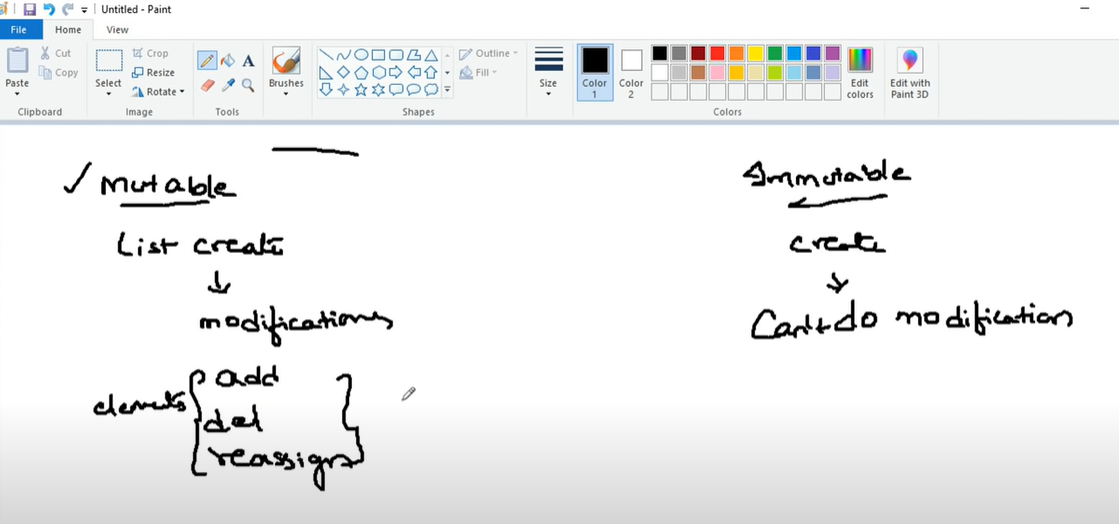 Untitled - Paint
File Home View
Paste
Cut
Copy
Clipboard
Select
Crop
Resize
Rotate
Image
A
Tools
Brushes
Outline
Fill
Shapes
Size
Color 1
Color 2
Edit colors
Colors
Edit with Paint 3D
Mutable
List create
modifications
elements
add
del
reassign
Immutable
create
Can't do modification